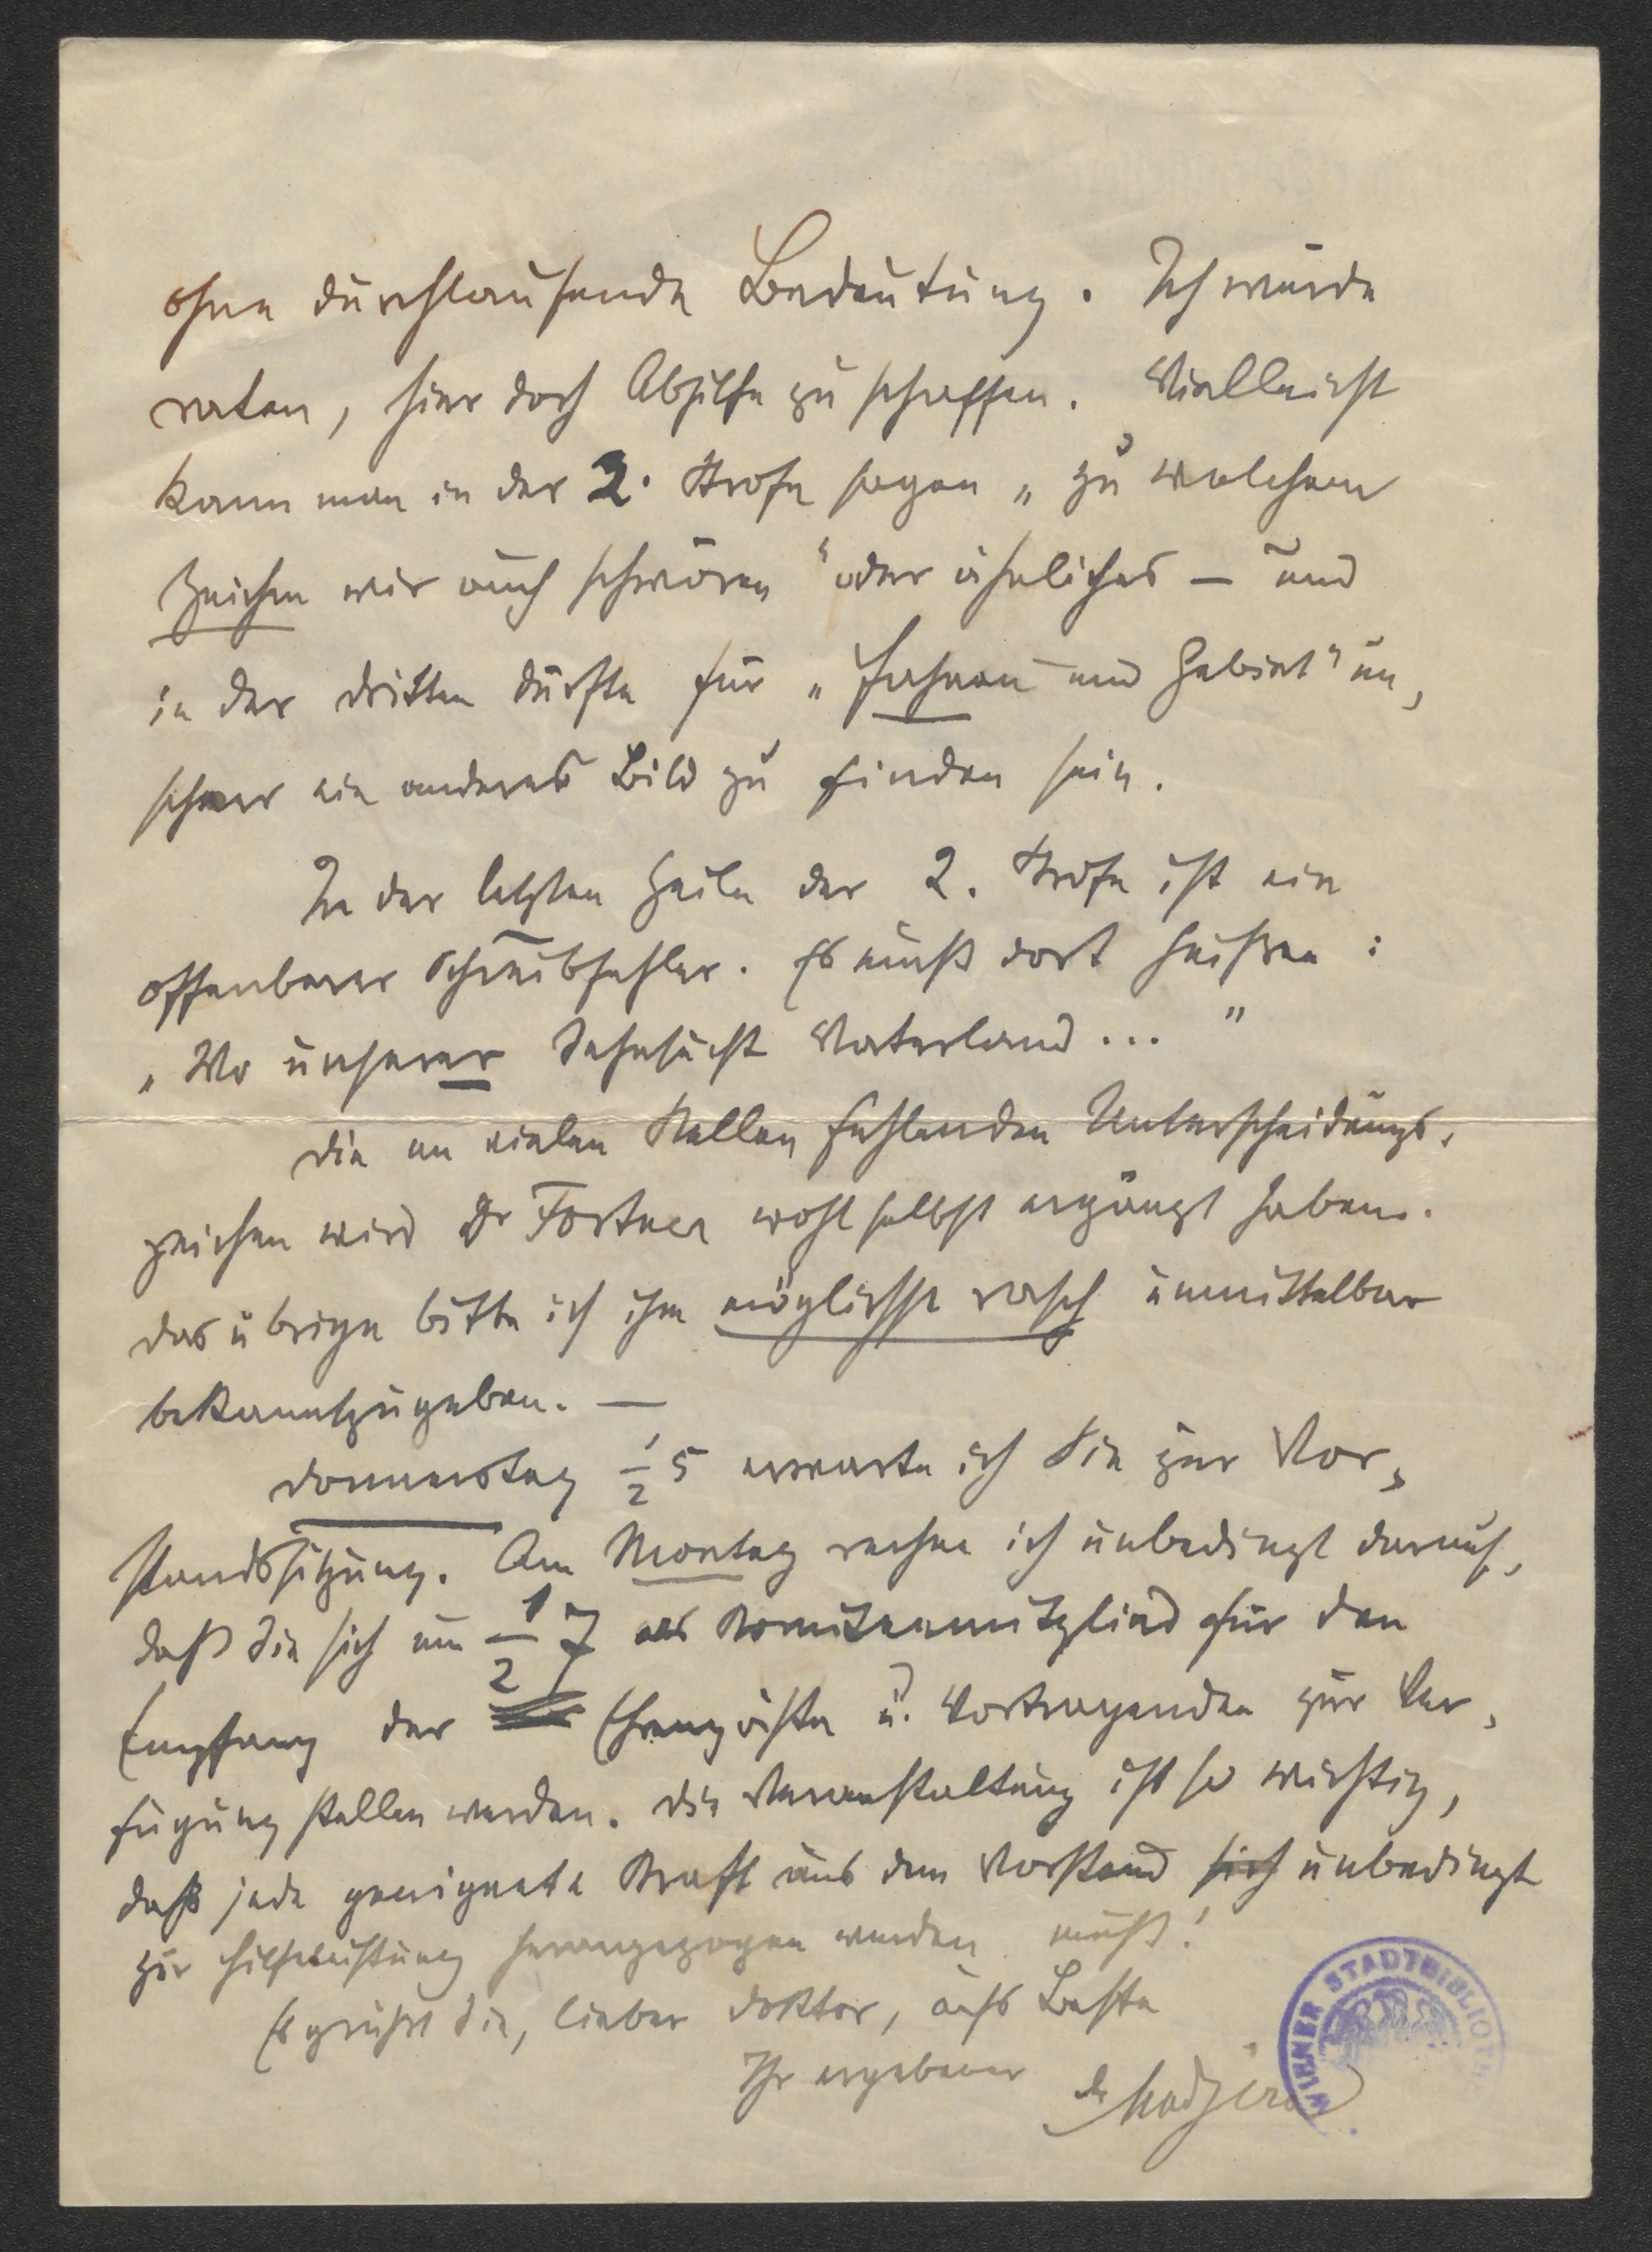 ohne durchlaufende Bedeutung. Ich würde
raten, hier doch Abhilfe zu schaffen. Vielleicht
kann man in der 2. Strofe sagen „zu welchem
Zeichen wir auch schwören" oder ähnliches – und
in der dritten dürfte für „Fahnen und Gebiet" un-
schwer ein anderes Bild zu finden sein.
In der letzten Zeile der 2. Strofe ist ein
offenbarer Schreibfehler. Es muß dort heißen:
„Wo unserer Sehnsucht Vaterland..."
Die an vielen Stellen fehlenden Unterscheidungs-
zeichen wird Dr Fortner wohl selbst ergänzt haben.
Das übrige bitte ich ihm möglichst rasch unmittelbar
bekanntzugeben. —
Donnerstag ½ 5 erwarte ich Sie zur Vor-
standssitzung. Am Montag rechne ich unbedingt darauf,
daß Sie sich um ½ 7 als Komiteemitglied für den
Empfang der Ehrengäste u. Vortragenden zur Ver-
fügung stellen werden. Die Veranstaltung ist so wichtig,
daß jede geeignete Kraft aus dem Vorstand sich unbedingt
zur Hilfeleistung herangezogen werden muß!
Es grüßt Sie, lieber Doktor, aufs Beste
Ihr ergebener Dr Madjera
WIENER STADTBIBLIOTHEK